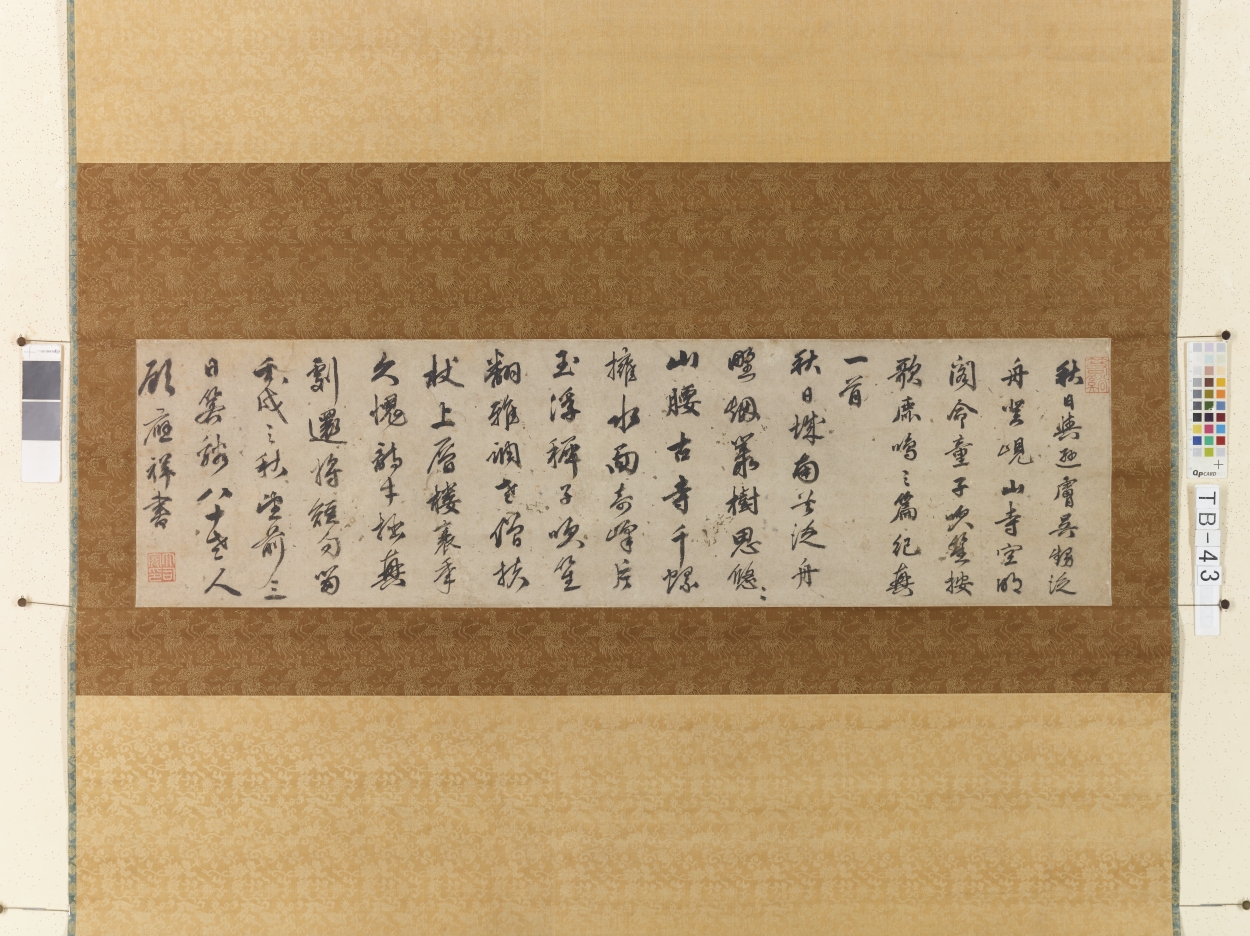 秋日與膚吳甥泛
舟登峴山寺空明
閣令童子吹笙按
歌鹿鳴之篇紀興
一首
秋日城南共泛舟
野烟叢樹思悠〻
山腰古寺千螺
擁水面奇峰片
玉浮穉子吹笙
翻雅調老僧扶
杖上層樓衰年
久愧詩才拙興
劇還將短句留
壬戌之秋望前三
日箬谿八十老人
顧應祥書
TB-43
QPCARD